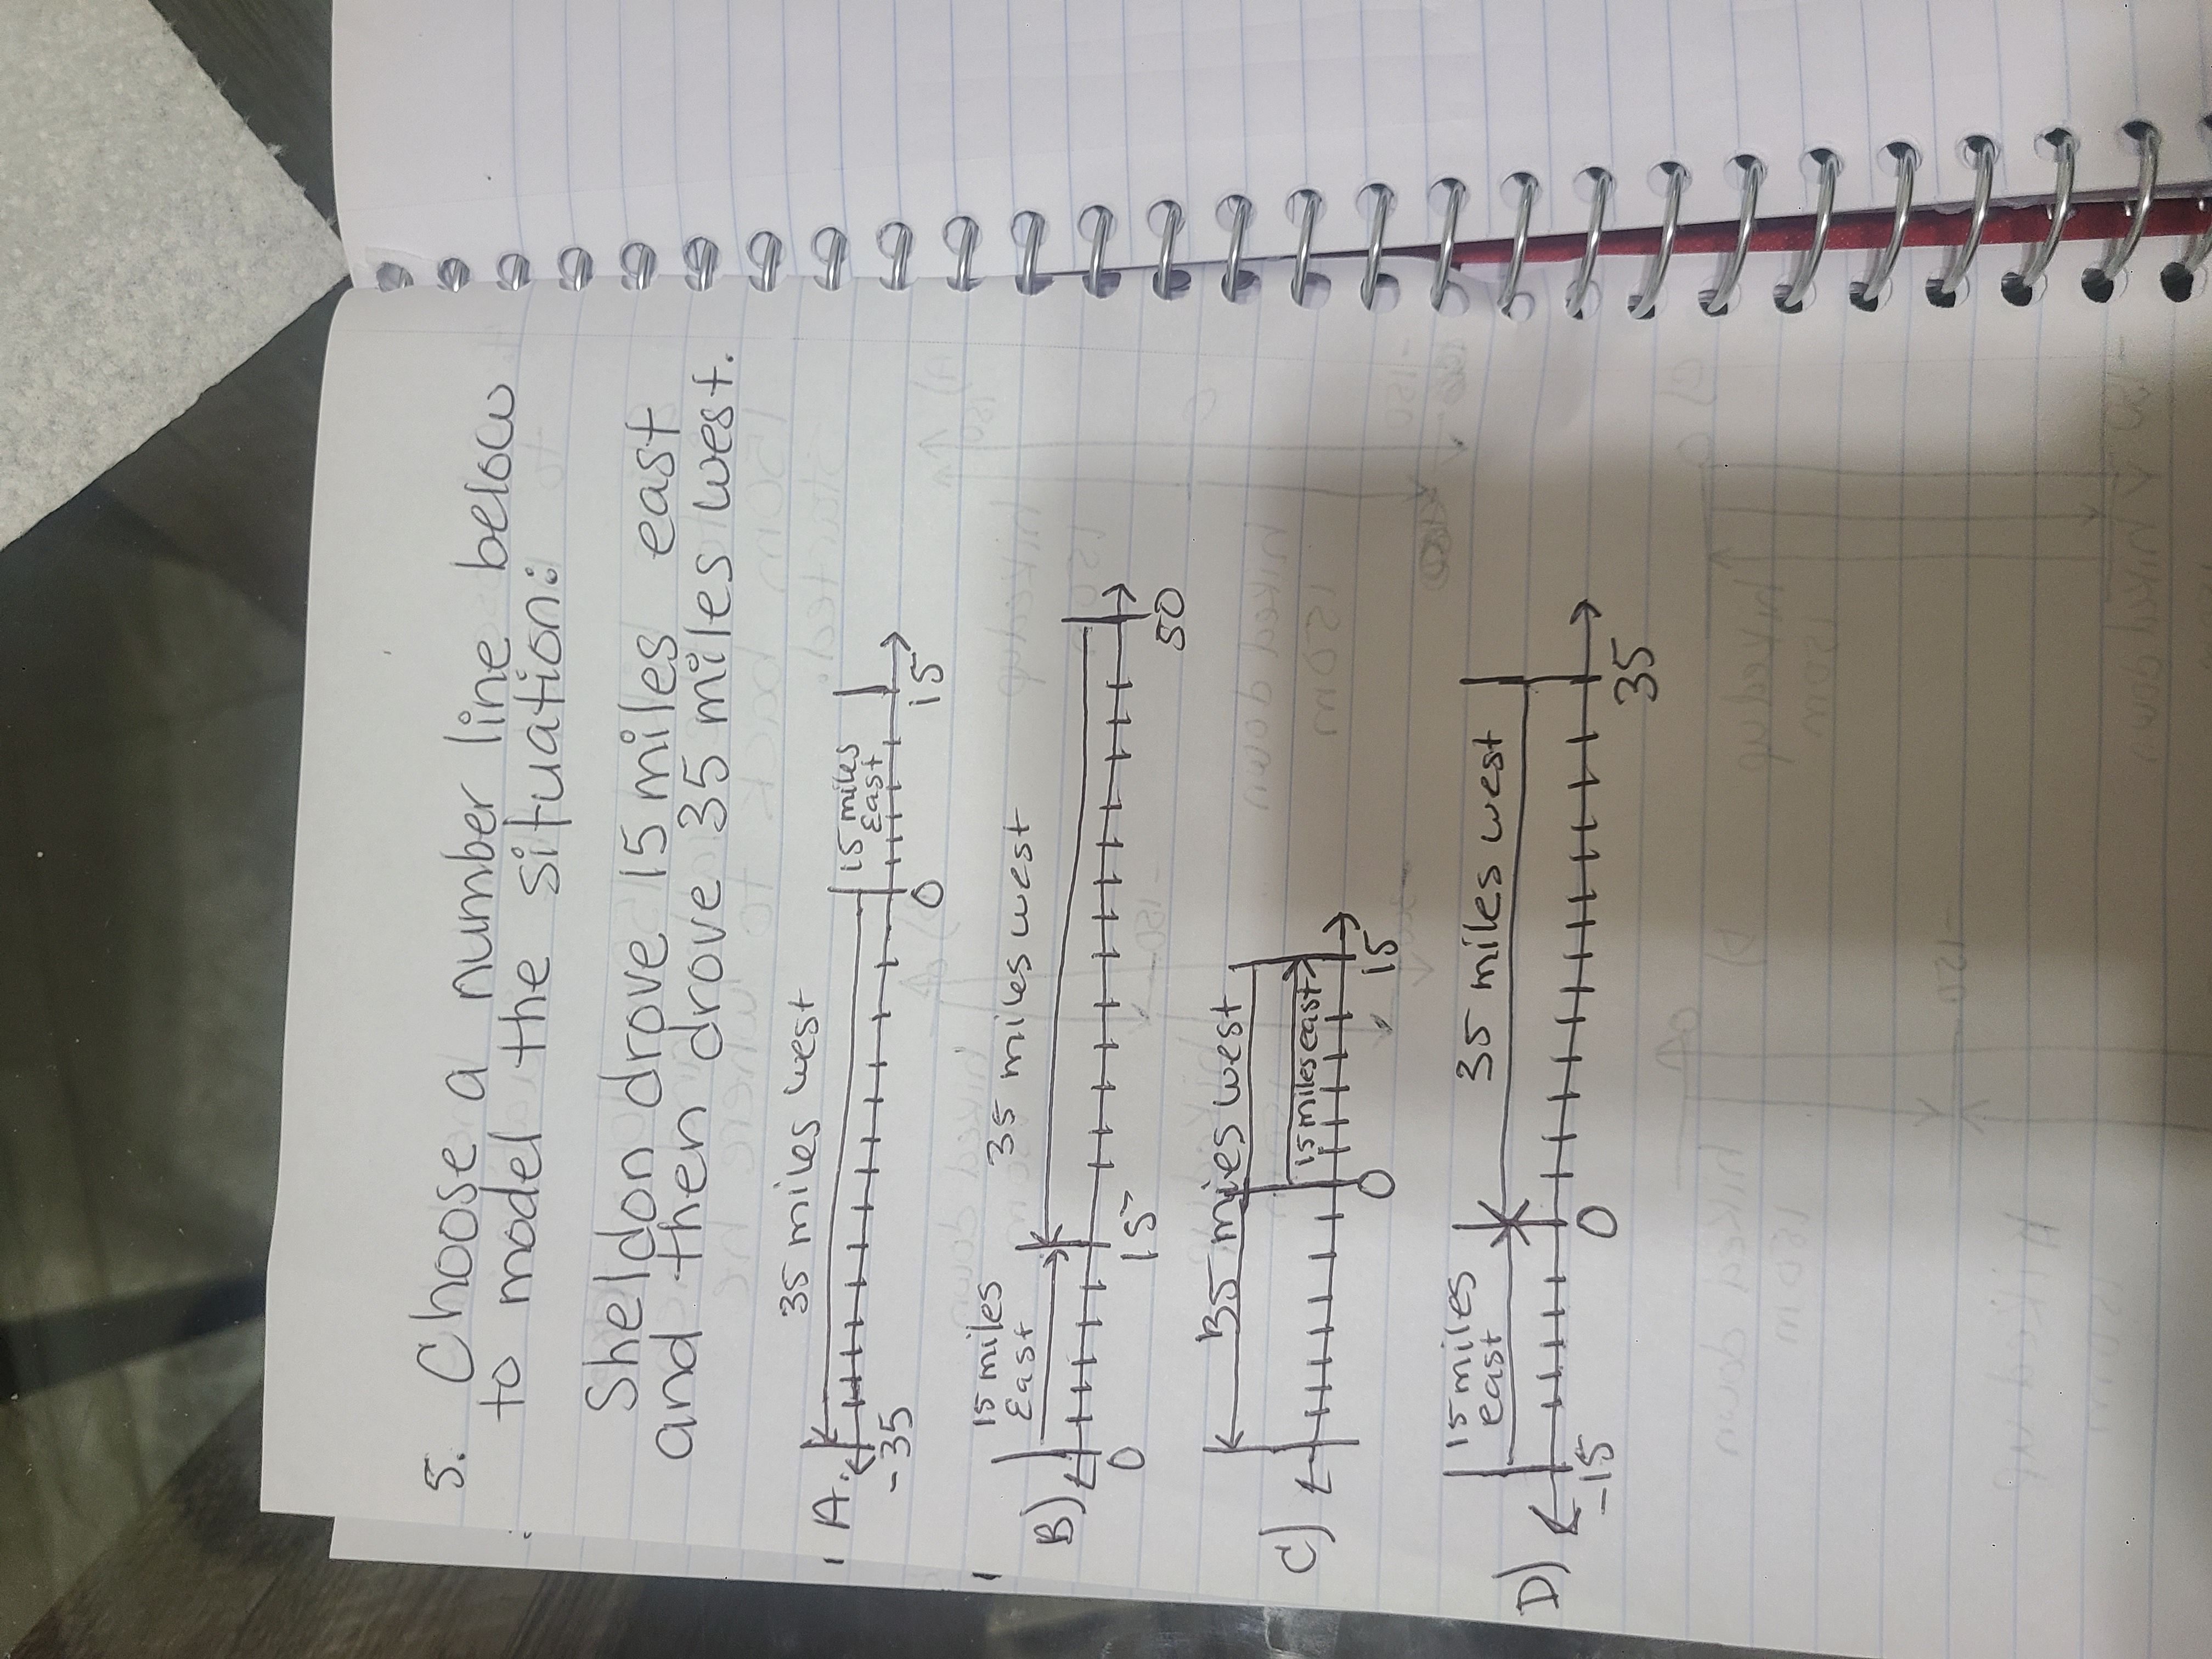 5. Choose a number line below
to model the situation:
Sheldon drove 15 miles east
and then drove 35 miles west.
A.
35 miles west
15 miles
East
-35
0
15
B)
15 miles
East
35 miles west
0
15
50
C)
35 miles west
15 miles east
0
15
D)
15 miles
east
35 miles west
-15
0
35